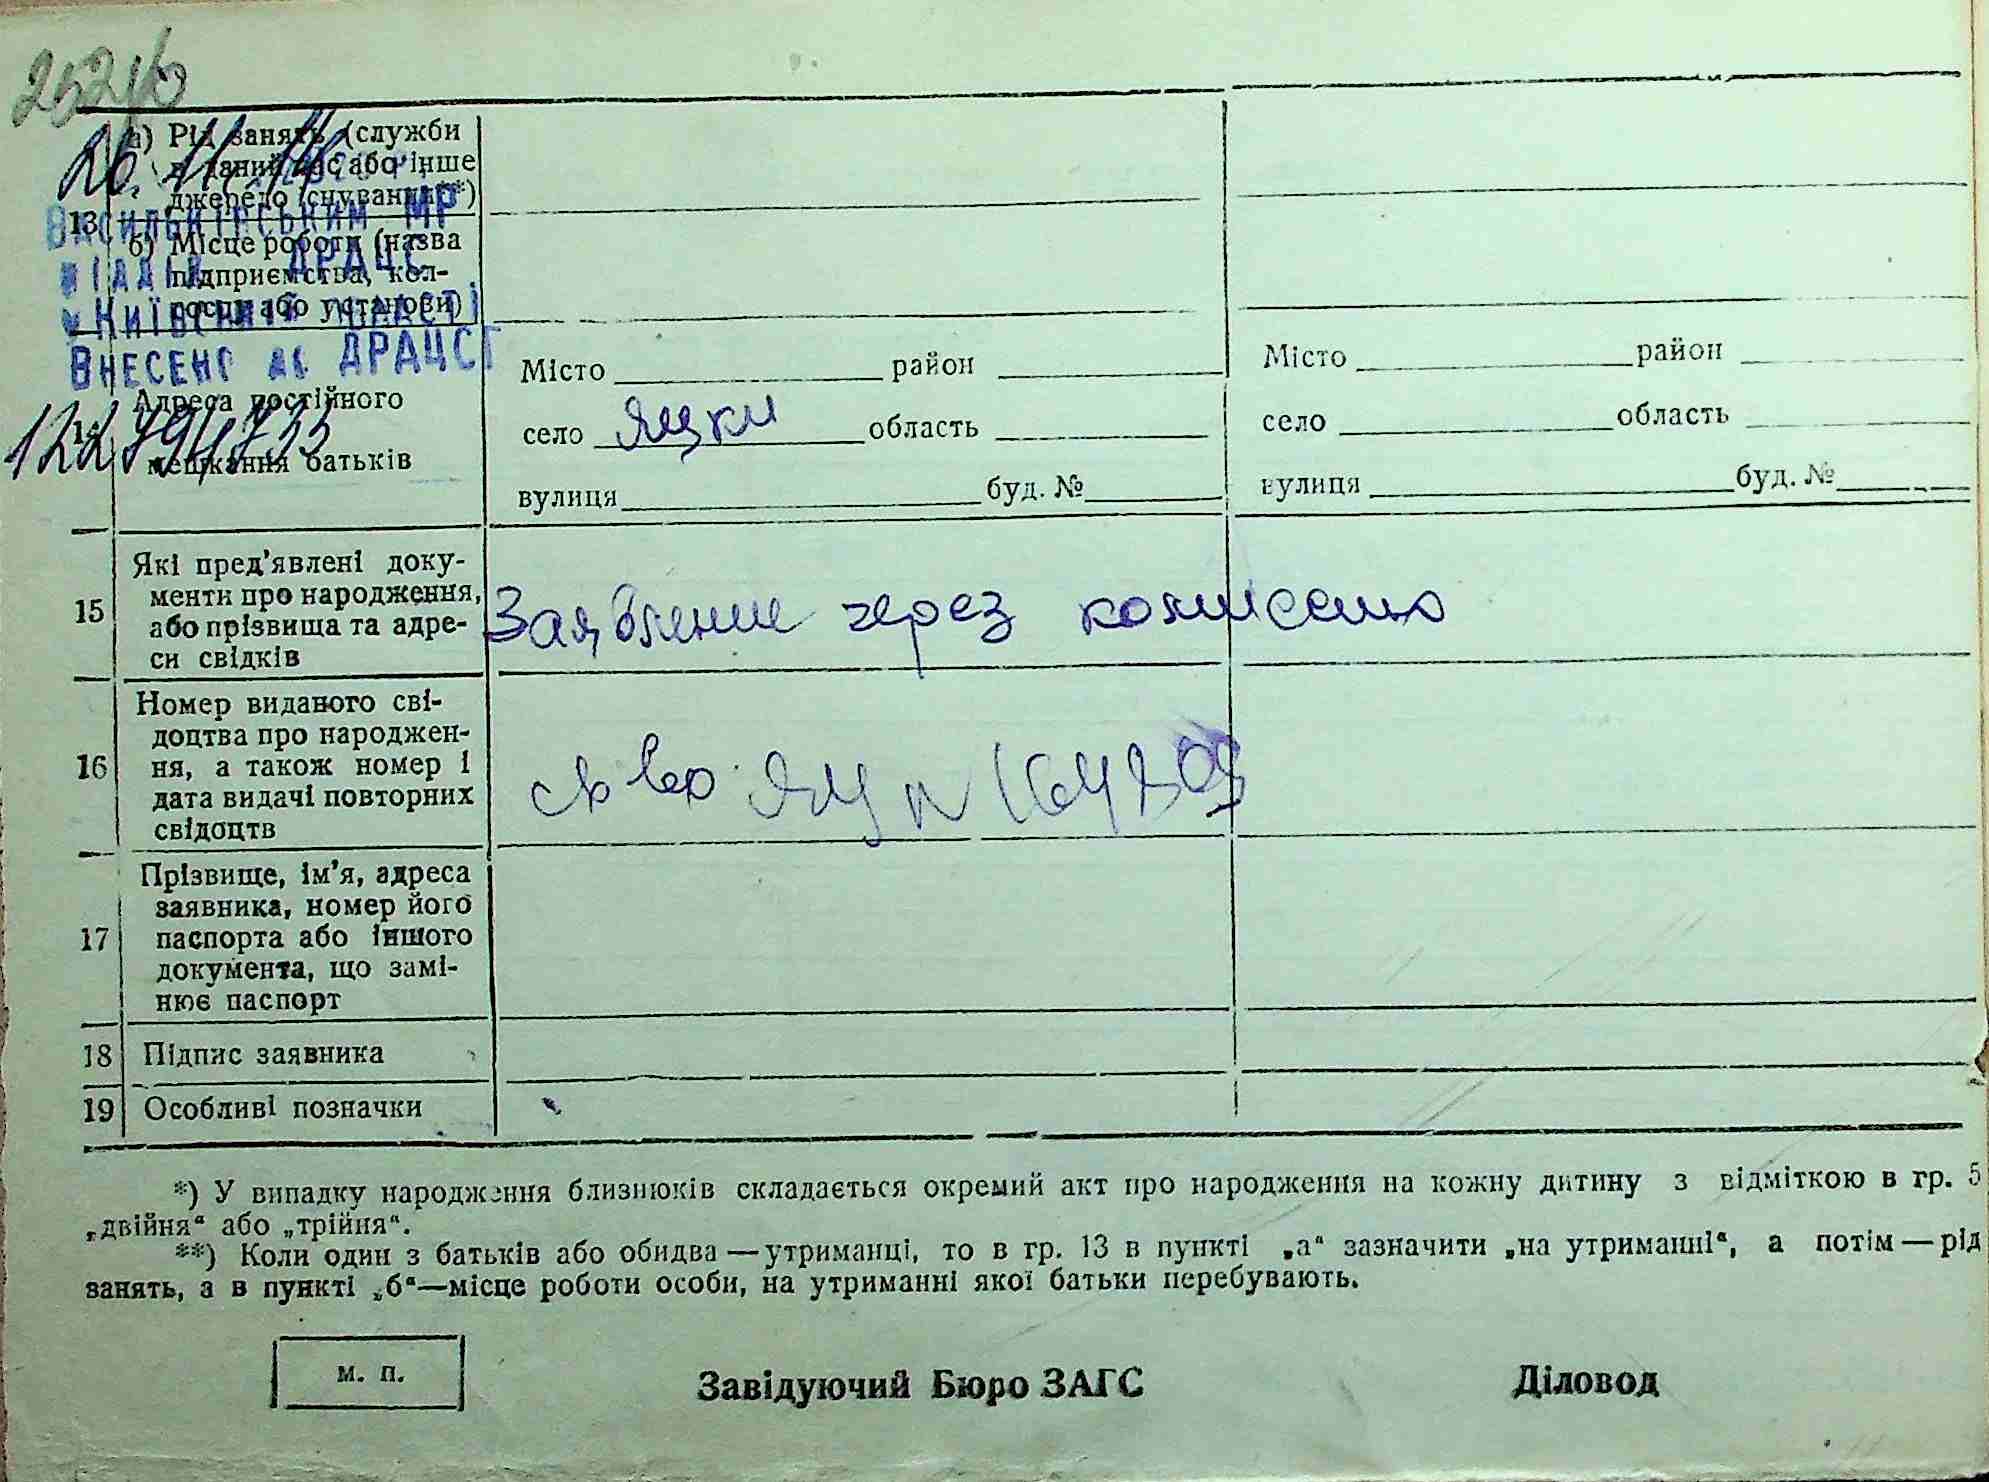 а) Рід занять (служби
в даний час або інше
джерело існування**)
13
б) Місце роботи (назва
підприємства, кол-
госпу або установи)
26.11.14
Васильківським МР
відділ ДРАЦС
Київській області
Внесено до ДРАЦСГ
Адреса постійного
мешкання батьків
Місто район
село Яцки область
вулиця буд. №
Місто район
село область
вулиця буд. №
15
Які пред'явлені доку-
менти про народження,
або прізвища та адре-
си свідків
Заявление через комиссию
16
Номер виданого сві-
доцтва про народжен-
ня, а також номер і
дата видачі повторних
свідоцтв
св во ЯЦ N
17
Прізвище, ім'я, адреса
заявника, номер його
паспорта або іншого
документа, що замі-
нює паспорт
18 Підпис заявника
19 Особливі позначки
*) У випадку народження близнюків складається окремий акт про народження на кожну дитину з відміткою в гр. 5
„двійня“ або „трійня“.
**) Коли один з батьків або обидва — утриманці, то в гр. 13 в пункті „а“ зазначити „на утриманні“, а потім — рід
занять, а в пункті „б“—місце роботи особи, на утриманні якої батьки перебувають.
м. п.
Завідуючий Бюро ЗАГС
Діловод